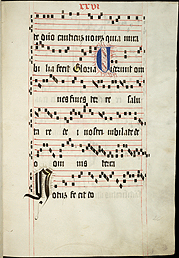 XXVI
te dño canticū nouū quia mira
bilia fecit Gloria Viderunt om
nes fines terre salu
ta re d i nostri iubilate de
o om nis terra
Notus fecit do